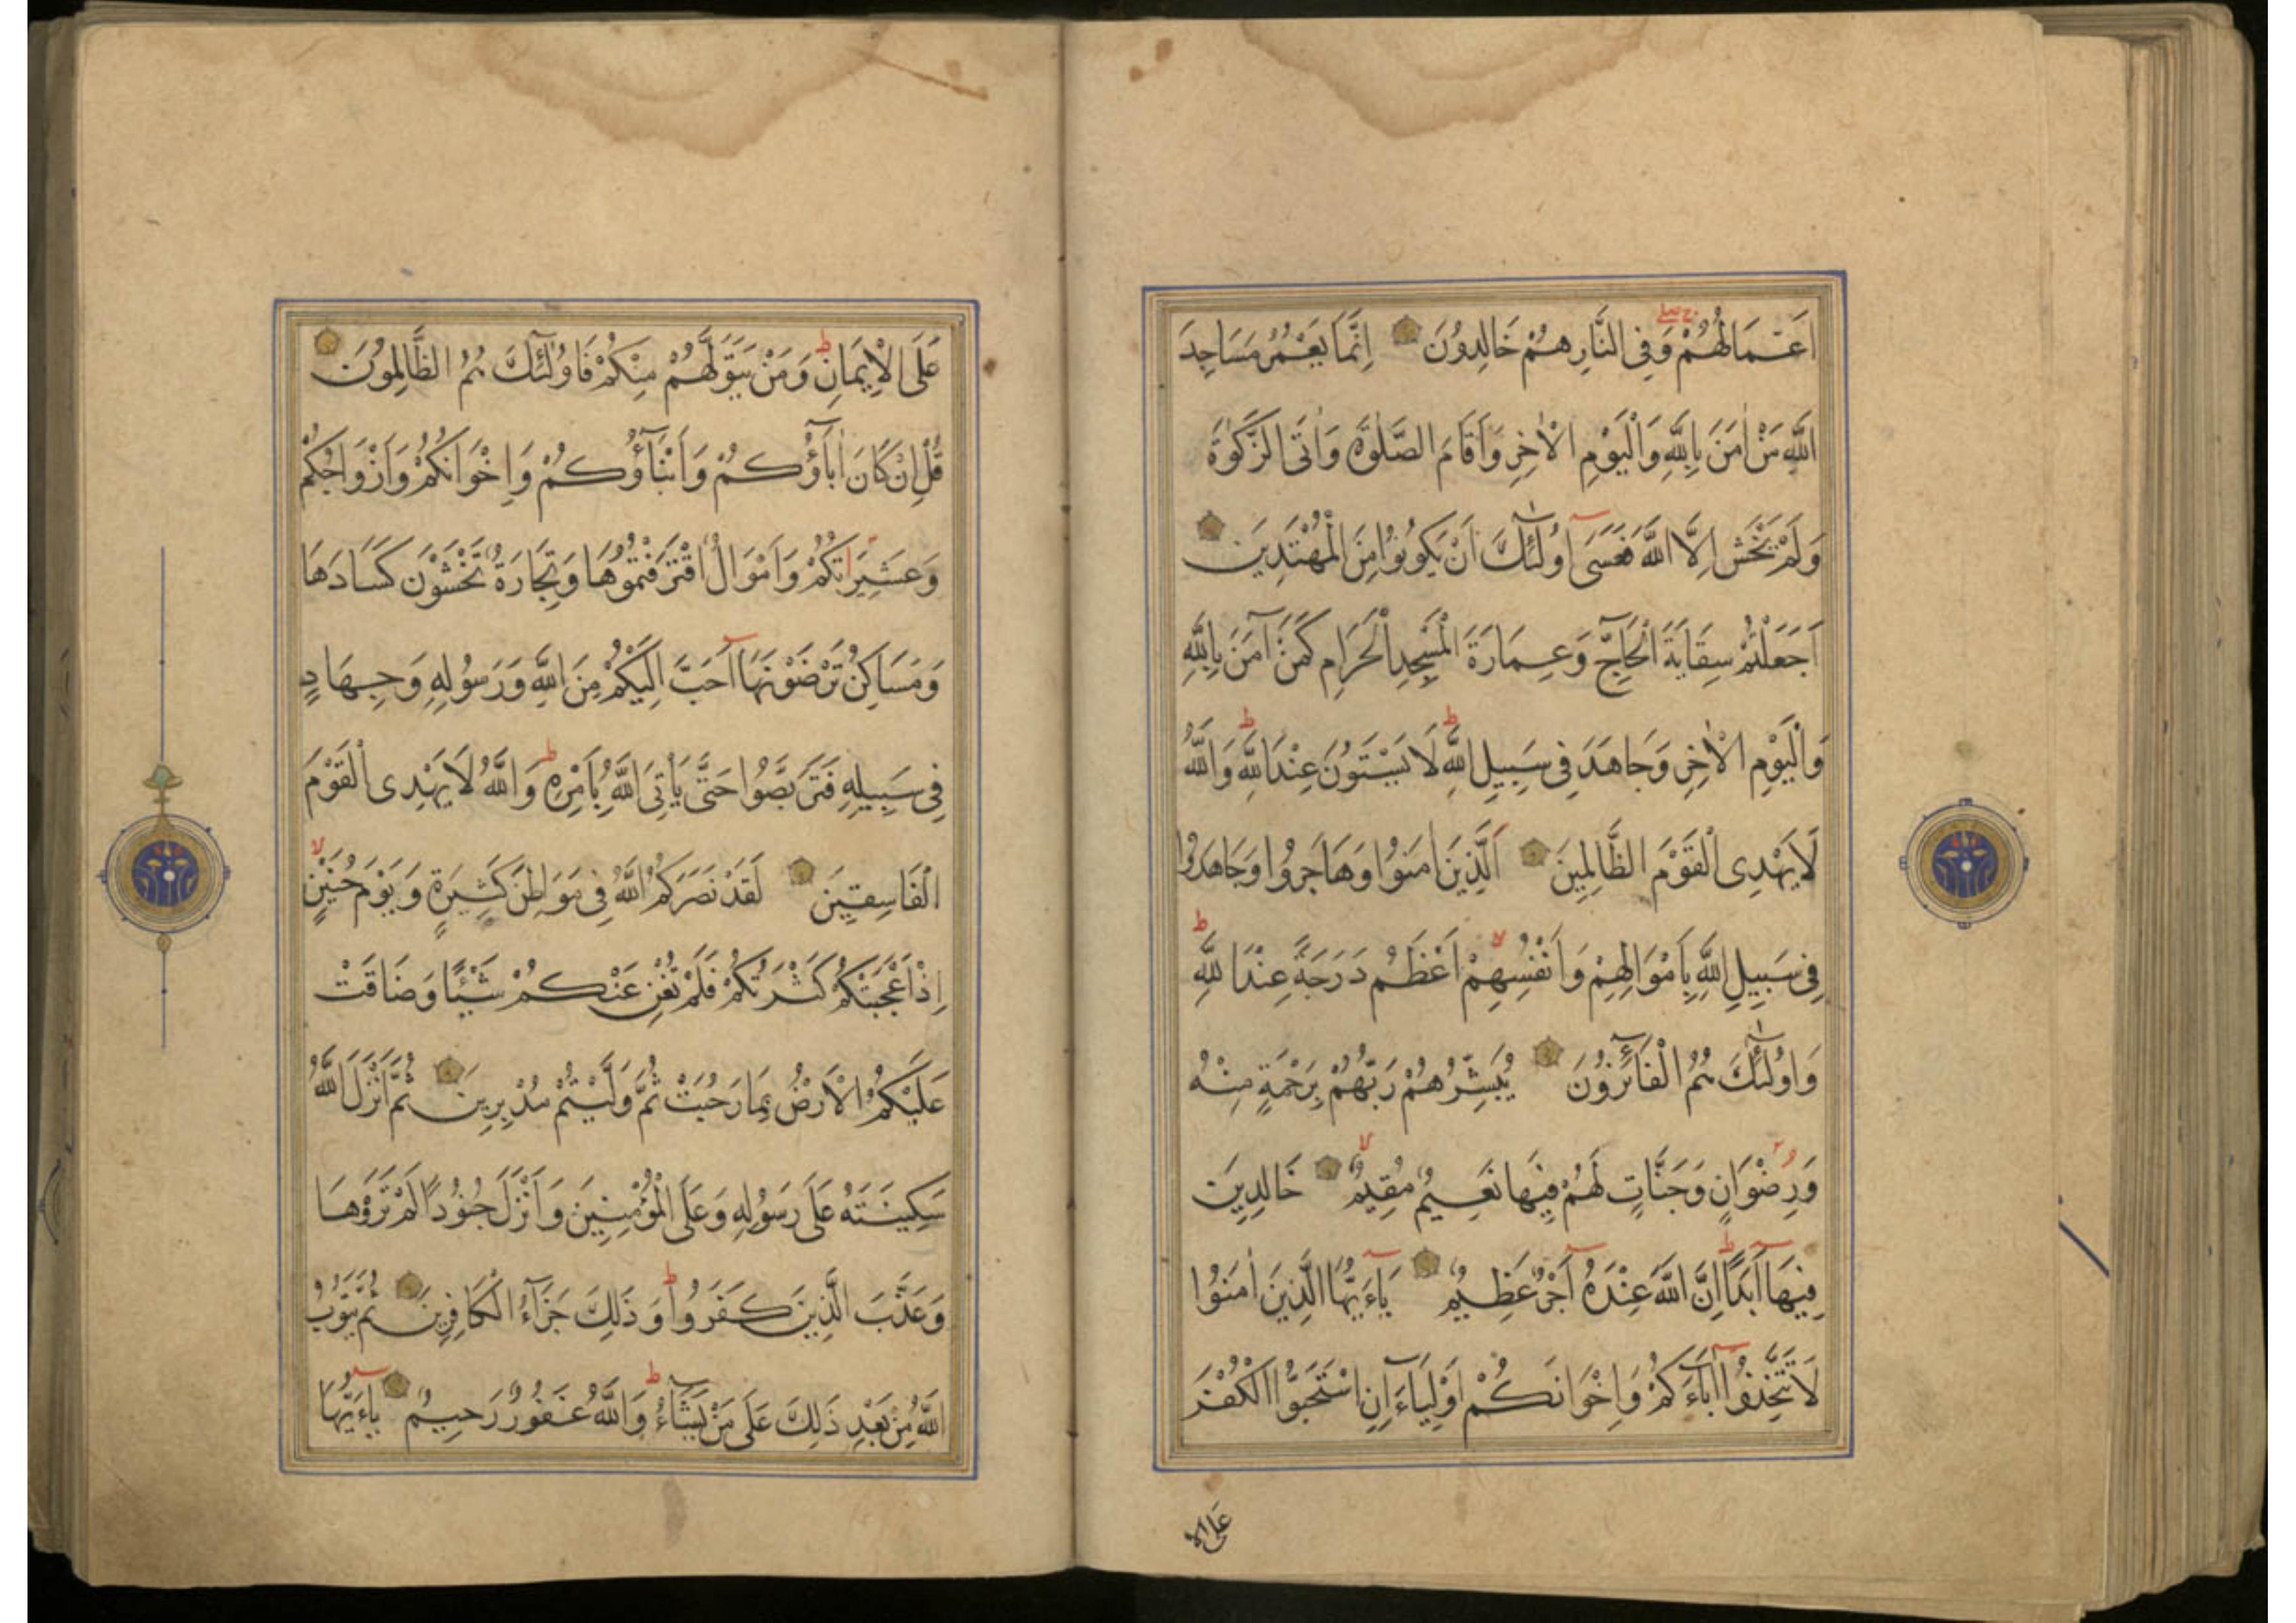 اَعْمَالُهُمْ وَفِى النَّارِ هُمْ خَالِدُونَ اِنَّمَا يَعْمُرُ مَسَاجِدَ
اللّٰهِ مَنْ اٰمَنَ بِاللّٰهِ وَالْيَوْمِ الْاٰخِرِ وَاَقَامَ الصَّلٰوةَ وَاٰتَى الزَّكٰوةَ
وَلَمْ يَخْشَ اِلَّا اللّٰهَ فَعَسٰٓى اُولٰٓئِكَ اَنْ يَكُونُوا مِنَ الْمُهْتَدِينَ
اَجَعَلْتُمْ سِقَايَةَ الْحَآجِّ وَعِمَارَةَ الْمَسْجِدِ الْحَرَامِ كَمَنْ آمَنَ بِاللّٰهِ
وَالْيَوْمِ الْاٰخِرِ وَجَاهَدَ فِى سَبِيلِ اللّٰهِ ط لَا يَسْتَوُنَ عِنْدَ اللّٰهِ ط وَاللّٰهُ
لَا يَهْدِى الْقَوْمَ الظَّالِمِينَ اَلَّذِينَ اٰمَنُوا وَهَاجَرُوا وَجَاهَدُوا
فِى سَبِيلِ اللّٰهِ بِاَمْوَالِهِمْ وَاَنْفُسِهِمْ لا اَعْظَمُ دَرَجَةً عِنْدَ اللّٰهِ ط
وَاُولٰٓئِكَ هُمُ الْفَآئِزُونَ يُبَشِّرُهُمْ رَبُّهُمْ بِرَحْمَةٍ مِنْهُ
وَرِضْوَانٍ وَجَنَّاتٍ لَهُمْ فِيهَا نَعِيمٌ مُقِيمٌ لا خَالِدِينَ
فِيهَآ اَبَدًا ط اِنَّ اللّٰهَ عِنْدَهُٓ اَجْرٌ عَظِيمٌ يَآءَيُّهَا الَّذِينَ اٰمَنُوا
لَا تَتَّخِذُوٓا اٰبَآءَكُمْ وَاِخْوَانَكُمْ اَوْلِيَآءَ اِنِ اسْتَحَبُّوا الْكُفْرَ
عَلَى الا
عَلَى الْاِيمَانِ ط وَمَنْ يَتَوَلَّهُمْ مِنْكُمْ فَاُولٰٓئِكَ هُمُ الظَّالِمُونَ
قُلْ اِنْ كَانَ اٰبَآؤُكُمْ وَاَبْنَآؤُكُمْ وَاِخْوَانُكُمْ وَاَزْوَاجُكُمْ
وَعَشِيرَاتُكُمْ وَاَمْوَالٌ اقْتَرَفْتُمُوهَا وَتِجَارَةٌ تَخْشَوْنَ كَسَادَهَا
وَمَسَاكِنُ تَرْضَوْنَهَآ اَحَبَّ اِلَيْكُمْ مِنَ اللّٰهِ وَرَسُولِهِ وَجِهَادٍ
فِى سَبِيلِهِ فَتَرَبَّصُوا حَتَّى يَاْتِىَ اللّٰهُ بِاَمْرِهِ ط وَاللّٰهُ لَا يَهْدِى الْقَوْمَ
الْفَاسِقِينَ لَقَدْ نَصَرَكُمُ اللّٰهُ فِى مَوَاطِنَ كَثِيرَةٍ وَيَوْمَ حُنَيْنٍ لا
اِذْ اَعْجَبَتْكُمْ كَثْرَتُكُمْ فَلَمْ تُغْنِ عَنْكُمْ شَيْئًا وَضَاقَتْ
عَلَيْكُمُ الْاَرْضُ بِمَا رَحُبَتْ ثُمَّ وَلَّيْتُمْ مُدْبِرِينَ ثُمَّ اَنْزَلَ اللّٰهُ
سَكِينَتَهُ عَلَى رَسُولِهِ وَعَلَى الْمُؤْمِنِينَ وَاَنْزَلَ جُنُودًا لَمْ تَرَوْهَا
وَعَذَّبَ الَّذِينَ كَفَرُوا ط وَذَلِكَ جَزَآءُ الْكَافِرِينَ ثُمَّ يَتُوبُ
اللّٰهُ مِنْ بَعْدِ ذَلِكَ عَلَى مَنْ يَشَآءُ ط وَاللّٰهُ غَفُورٌ رَحِيمٌ يَآءَيُّهَا